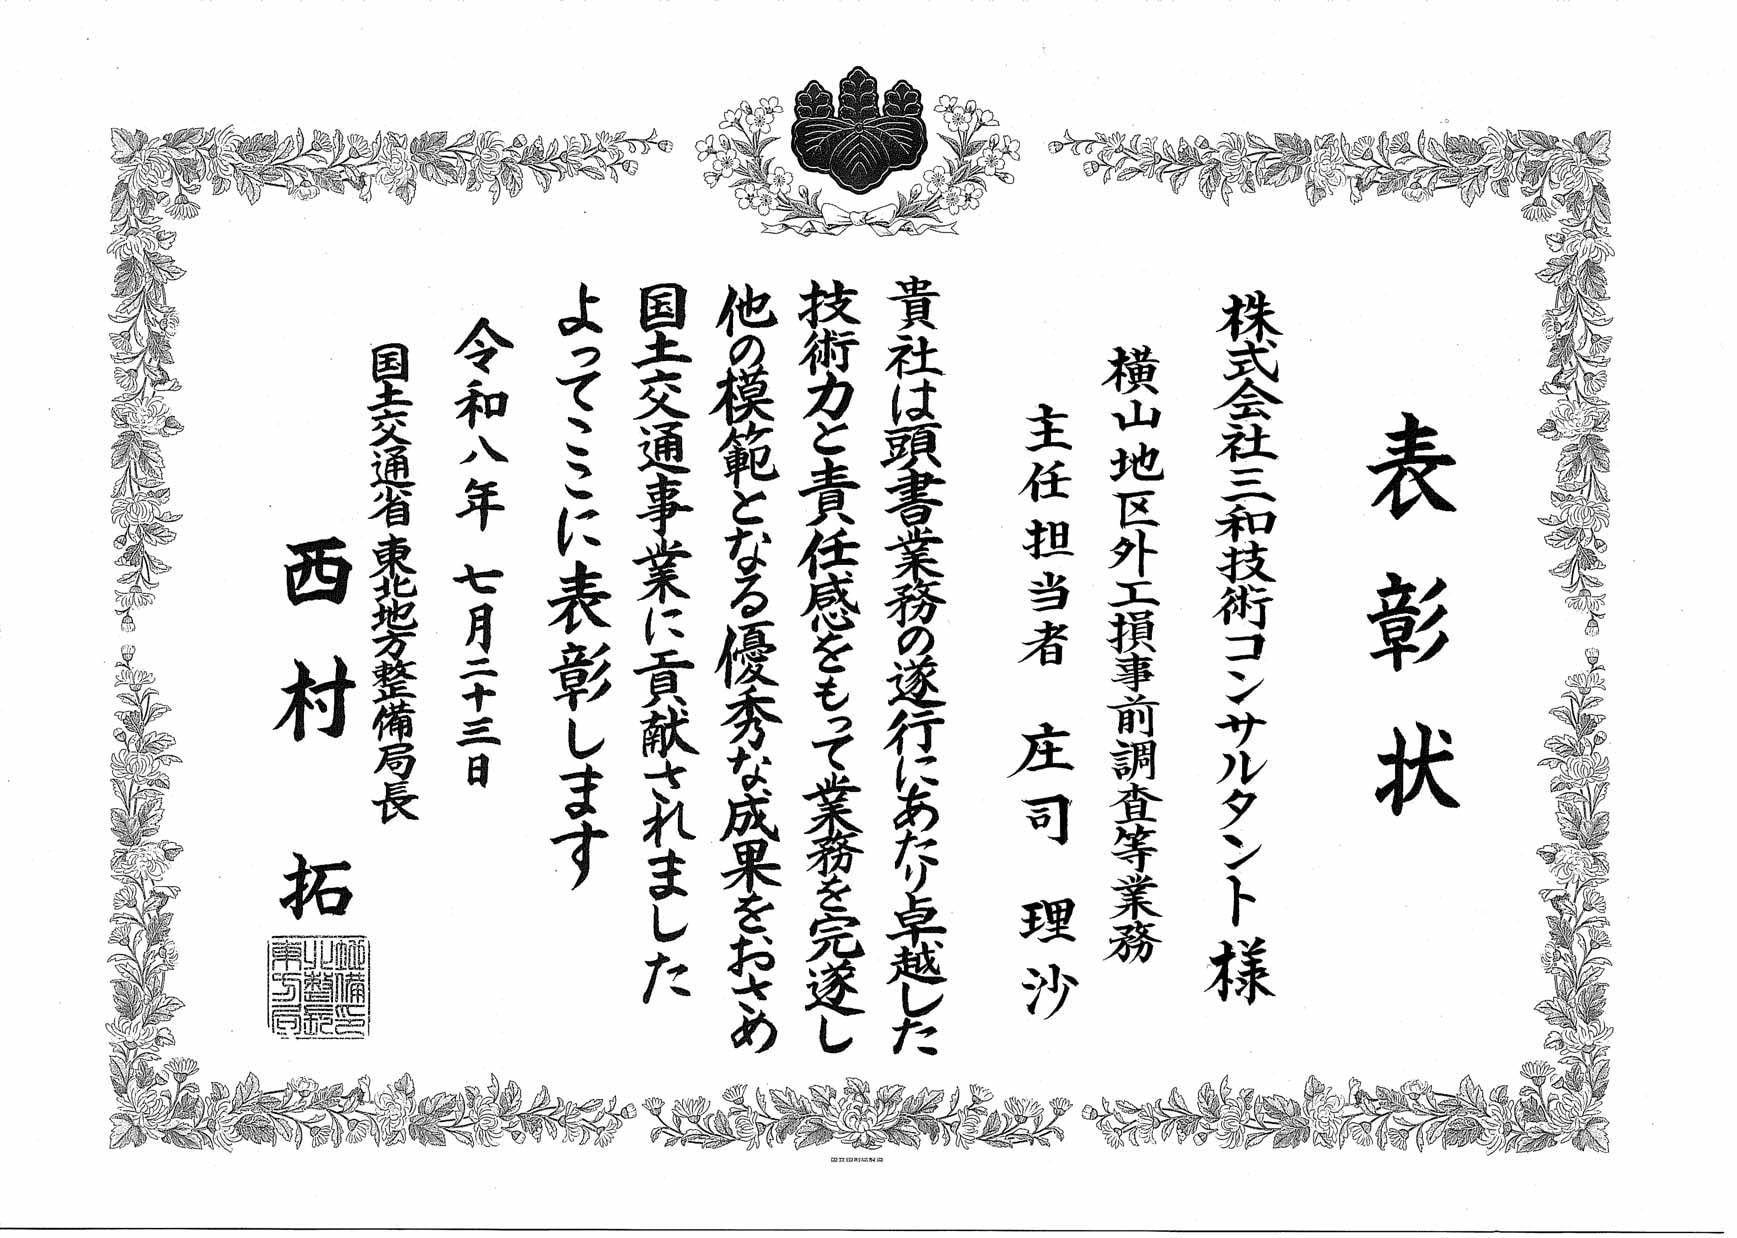 表彰状
株式会社三和技術コンサルタント様
横山地区外工損事前調査等業務
主任担当者 庄司 理沙
貴社は頭書業務の遂行にあたり卓越した
技術力と責任感をもって業務を完遂し
他の模範となる優秀な成果をおさめ
国土交通事業に貢献されました
よってここに表彰します
令和八年 七月二十三日
国土交通省 東北地方整備局長
西村 拓